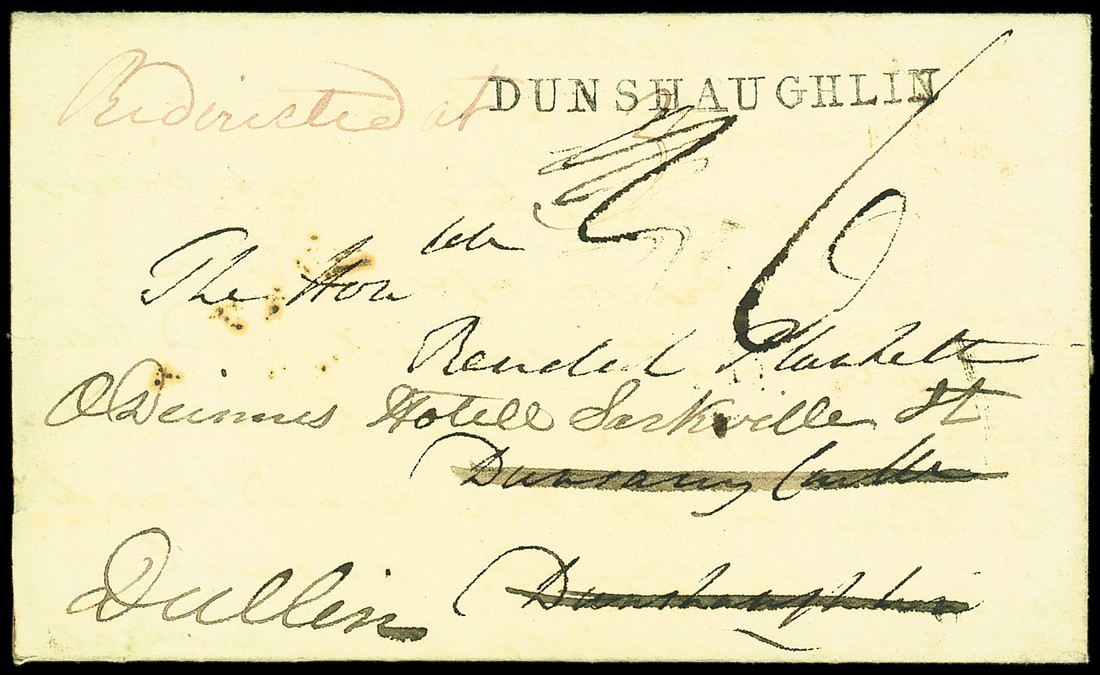 Redirected at DUNSHAUGHLIN
6
The Hon ble
Randal Plunkett
O Deinnes Hotell Sackville St
Dunsany Castle
Dublin
Dunshaughlin